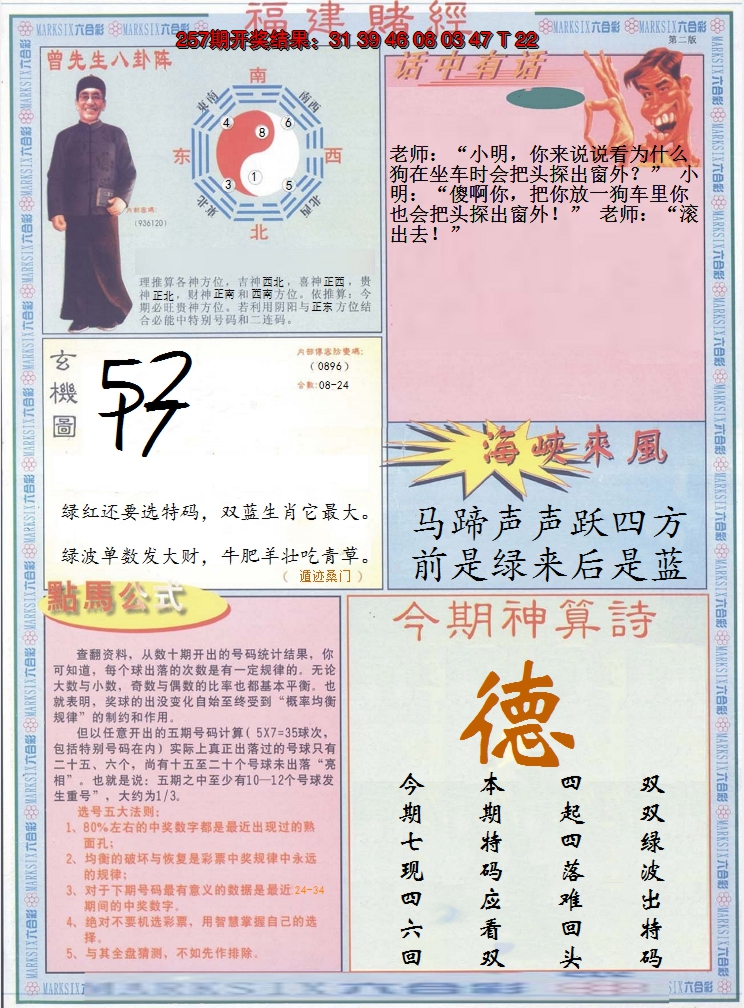 福建賭經
257期开奖结果：31 39 46 08 03 47 T 22
第二版
MARKSIX六合彩
曾先生八卦阵
南
東南
南西
4
8
6
东
西
3
1
5
東北
北西
北
内部密碼：
（936120）
理推算各神方位，吉神西北，喜神正西，贵
神正北，财神正南和西南方位。依推算：今
期必旺贵神方位。若利用阴阳与正东方位结
合必能中特别号码和二连码。
话中有话
老师：“小明，你来说说看为什么
狗在坐车时会把头探出窗外？” 小
明：“傻啊你，把你放一狗车里你
也会把头探出窗外！” 老师：“滚
出去！”
玄機圖
内部傳密防變碼：
（0896）
合數：08-24
绿红还要选特码，双蓝生肖它最大。
绿波单数发大财，牛肥羊壮吃青草。
（ 遁迹桑门 ）
海峽來風
马蹄声声跃四方
前是绿来后是蓝
點馬公式
查翻资料，从数十期开出的号码统计结果，你
可知道，每个球出落的次数是有一定规律的。无论
大数与小数，奇数与偶数的比率也都基本平衡。也
就表明，奖球的出没变化自始至终受到“概率均衡
规律”的制约和作用。
但以任意开出的五期号码计算（5X7=35球次，
包括特别号码在内）实际上真正出落过的号球只有
二十五、六个，尚有十五至二十个号球未出落“亮
相”。也就是说：五期之中至少有10—12个号球发
生重号”，大约为1/3。
选号五大法则：
1、80%左右的中奖数字都是最近出现过的熟
面孔；
2、均衡的破坏与恢复是彩票中奖规律中永远
的规律；
3、对于下期号码最有意义的数据是最近24-34
期间的中奖数字。
4、绝对不要机选彩票，用智慧掌握自己的选
择。
5、与其全盘猜测，不如先作排除。
今期神算詩
德
今期七现四六回
本期特码应看双
四起四落难回头
双双绿波出特码